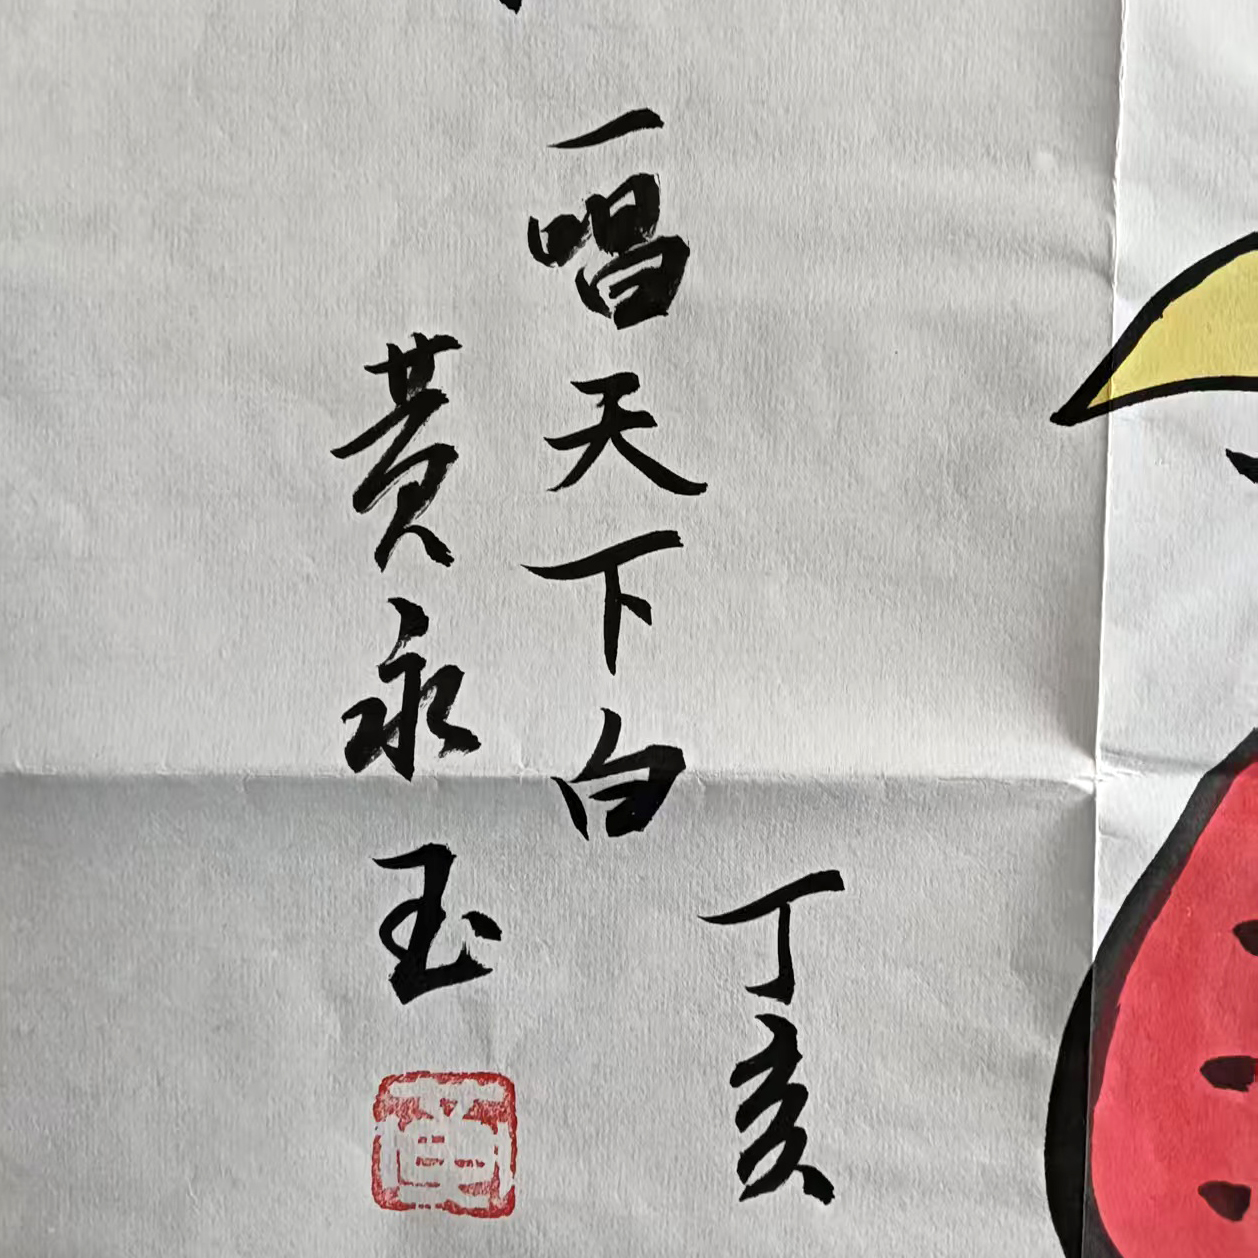 丁亥
一唱天下白
黄永玉